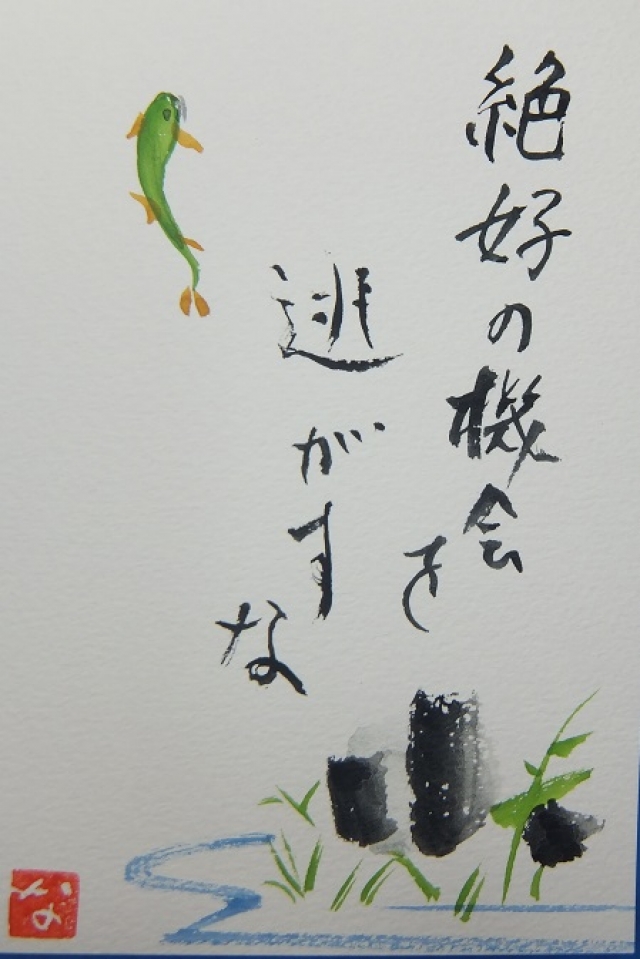 絶好の機会を
逃がすな